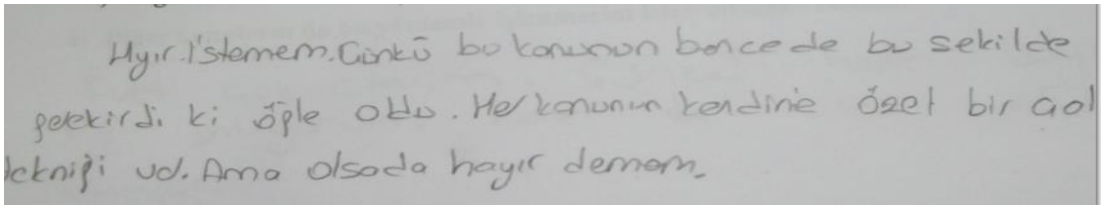 Hyır. İstemem. Çünkü bu konunun bencede bu sekilde
gerekirdi ki öyle oldu. Her konunun kendine özel bir
tekniği vd. Ama olsada hayır demem.